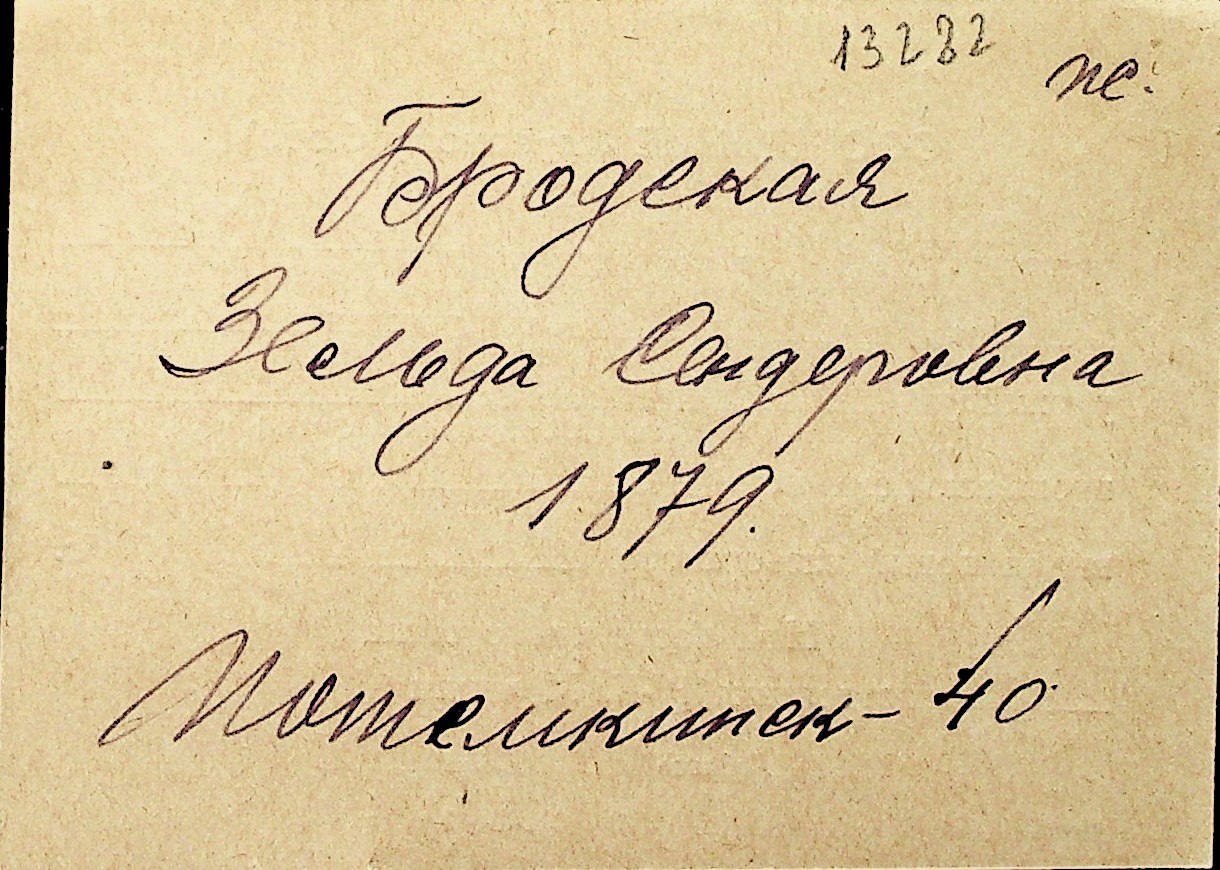 13282
ж.
Бродская
Зельда Сендеровна
1879.
Потемкинск-40